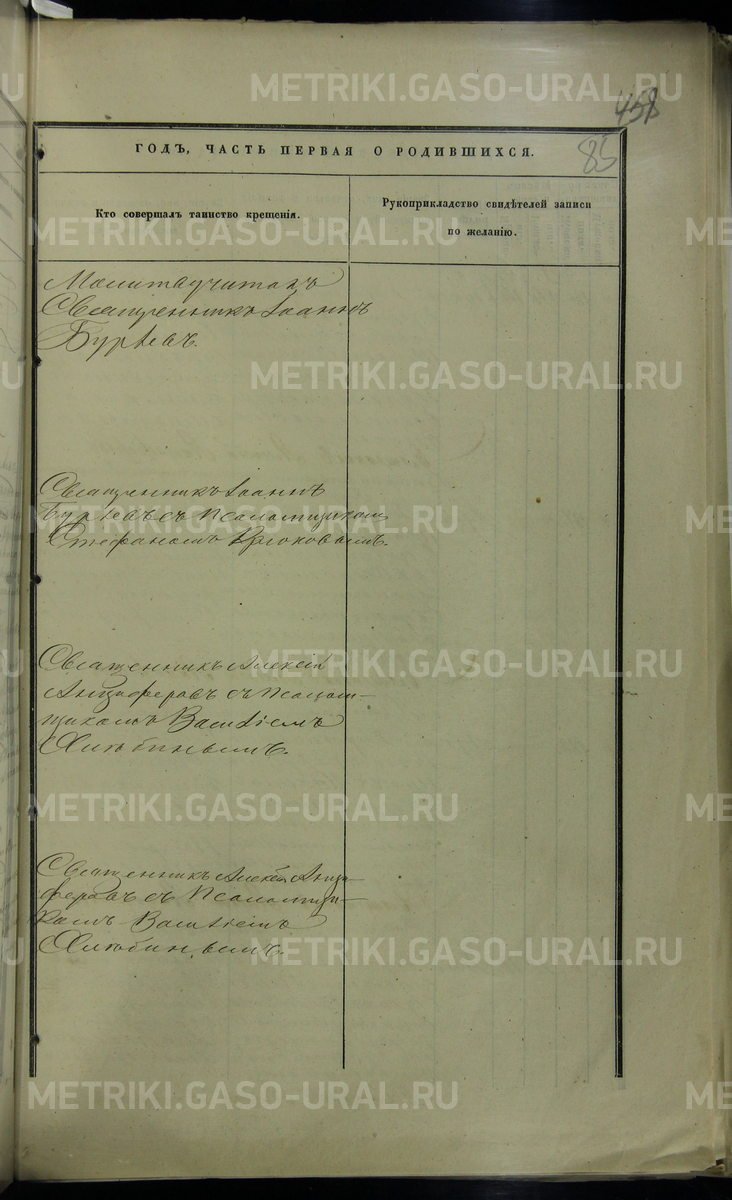 METRIKI.GASO-URAL.RU
458
85
ГОДЪ, ЧАСТЬ ПЕРВАЯ О РОДИВШИХСЯ.
Кто совершалъ таинство крещенія.
Рукоприкладство свидѣтелей записи
по желанію.
Молитву читалъ
Священникъ Іоаннъ
Бурѣевъ.
Священникъ Іоаннъ
Бурѣевъ съ Псаломщикомъ
Стефаномъ Крюковымъ.
Священникъ Алексій
Анциферовъ съ Псалом-
щикомъ Василіемъ
Хлюбинымъ.
Священникъ Алексій Анци-
феровъ съ Псаломщи-
комъ Василіемъ
Хлюбинымъ.